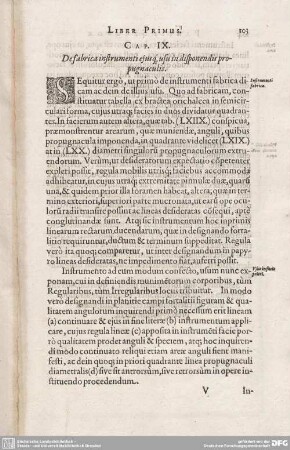 LIBER PRIMUS. 103
CAP. IX.
De fabrica instrumenti ejusq; usu in disponendis pro-
pugnaculis.
SEquitur ergò, ut primò de instrumenti fabrica di-
cam ac dein de illius usu. Quo ad fabricam, con-
Instrumenti
fabrica.
stituatur tabella ex bractea orichalcea in semicir-
culari forma, cujus arcus in duos dividatur quadran-
tes. In facierum autem altera, quæ tab. (LXIIX) conspicitur,
præmonstrentur arearum, quæ muniendæ, anguli, quibus
propugnacula imponenda, in quadrante videlicet (LXIX)
at in (LXX) dimetri singulorum propugnaculorum
extendorum. Verum, ut desideratorum expectatio competenter
expleri possit, regula mobilis utriq; faciei tabellæ accommoda
adhibeatur, ita ut
una, & quidem per ut illa foramen habeat, altera, quæ in ter-
mino exteriori, superiori parte
oculorum radii tum per posticas ac lineas desideratas apté
conglutinandæ sunt. Atq; sic instrumentum hoc inprimis
linearum rectarum ducendarum, quæ in designando forta-
litio requiruntur, ductum & terminum suppeditat. Regula
verò ita quoq; comparetur, ut inter designandum in papy-
ro lineas desideratas, ne impedimento fiat, auferri possit.
Instrumento ad eum modum confecto, usum nunc ex-
Usus instru-
ponam, cui in definiendis munimentorum corporibus, tùm
Regularibus, tùm Irregularibus locus tribuitur. In modo
vero designandi in planitie campi fortalitii figuram & qua-
litatem angulorum inquirendi primò necessum erit lineam
(a) continuare & ejus in fine literæ (b) instrumentum appli-
care, cujus regula lineæ (c) apposita in instrumenti facie por-
rò qualitatem prodet anguli & speciem, atq; hoc inquiren-
di modo continuato reliqui etiam areæ anguli fient mani-
festi, ac dein quoq; in priori quadrante linea propugnaculi
diametralis (d) sive sit antrorsum, sive retrorsum in opere in-
stituendo procedendum.
V In-